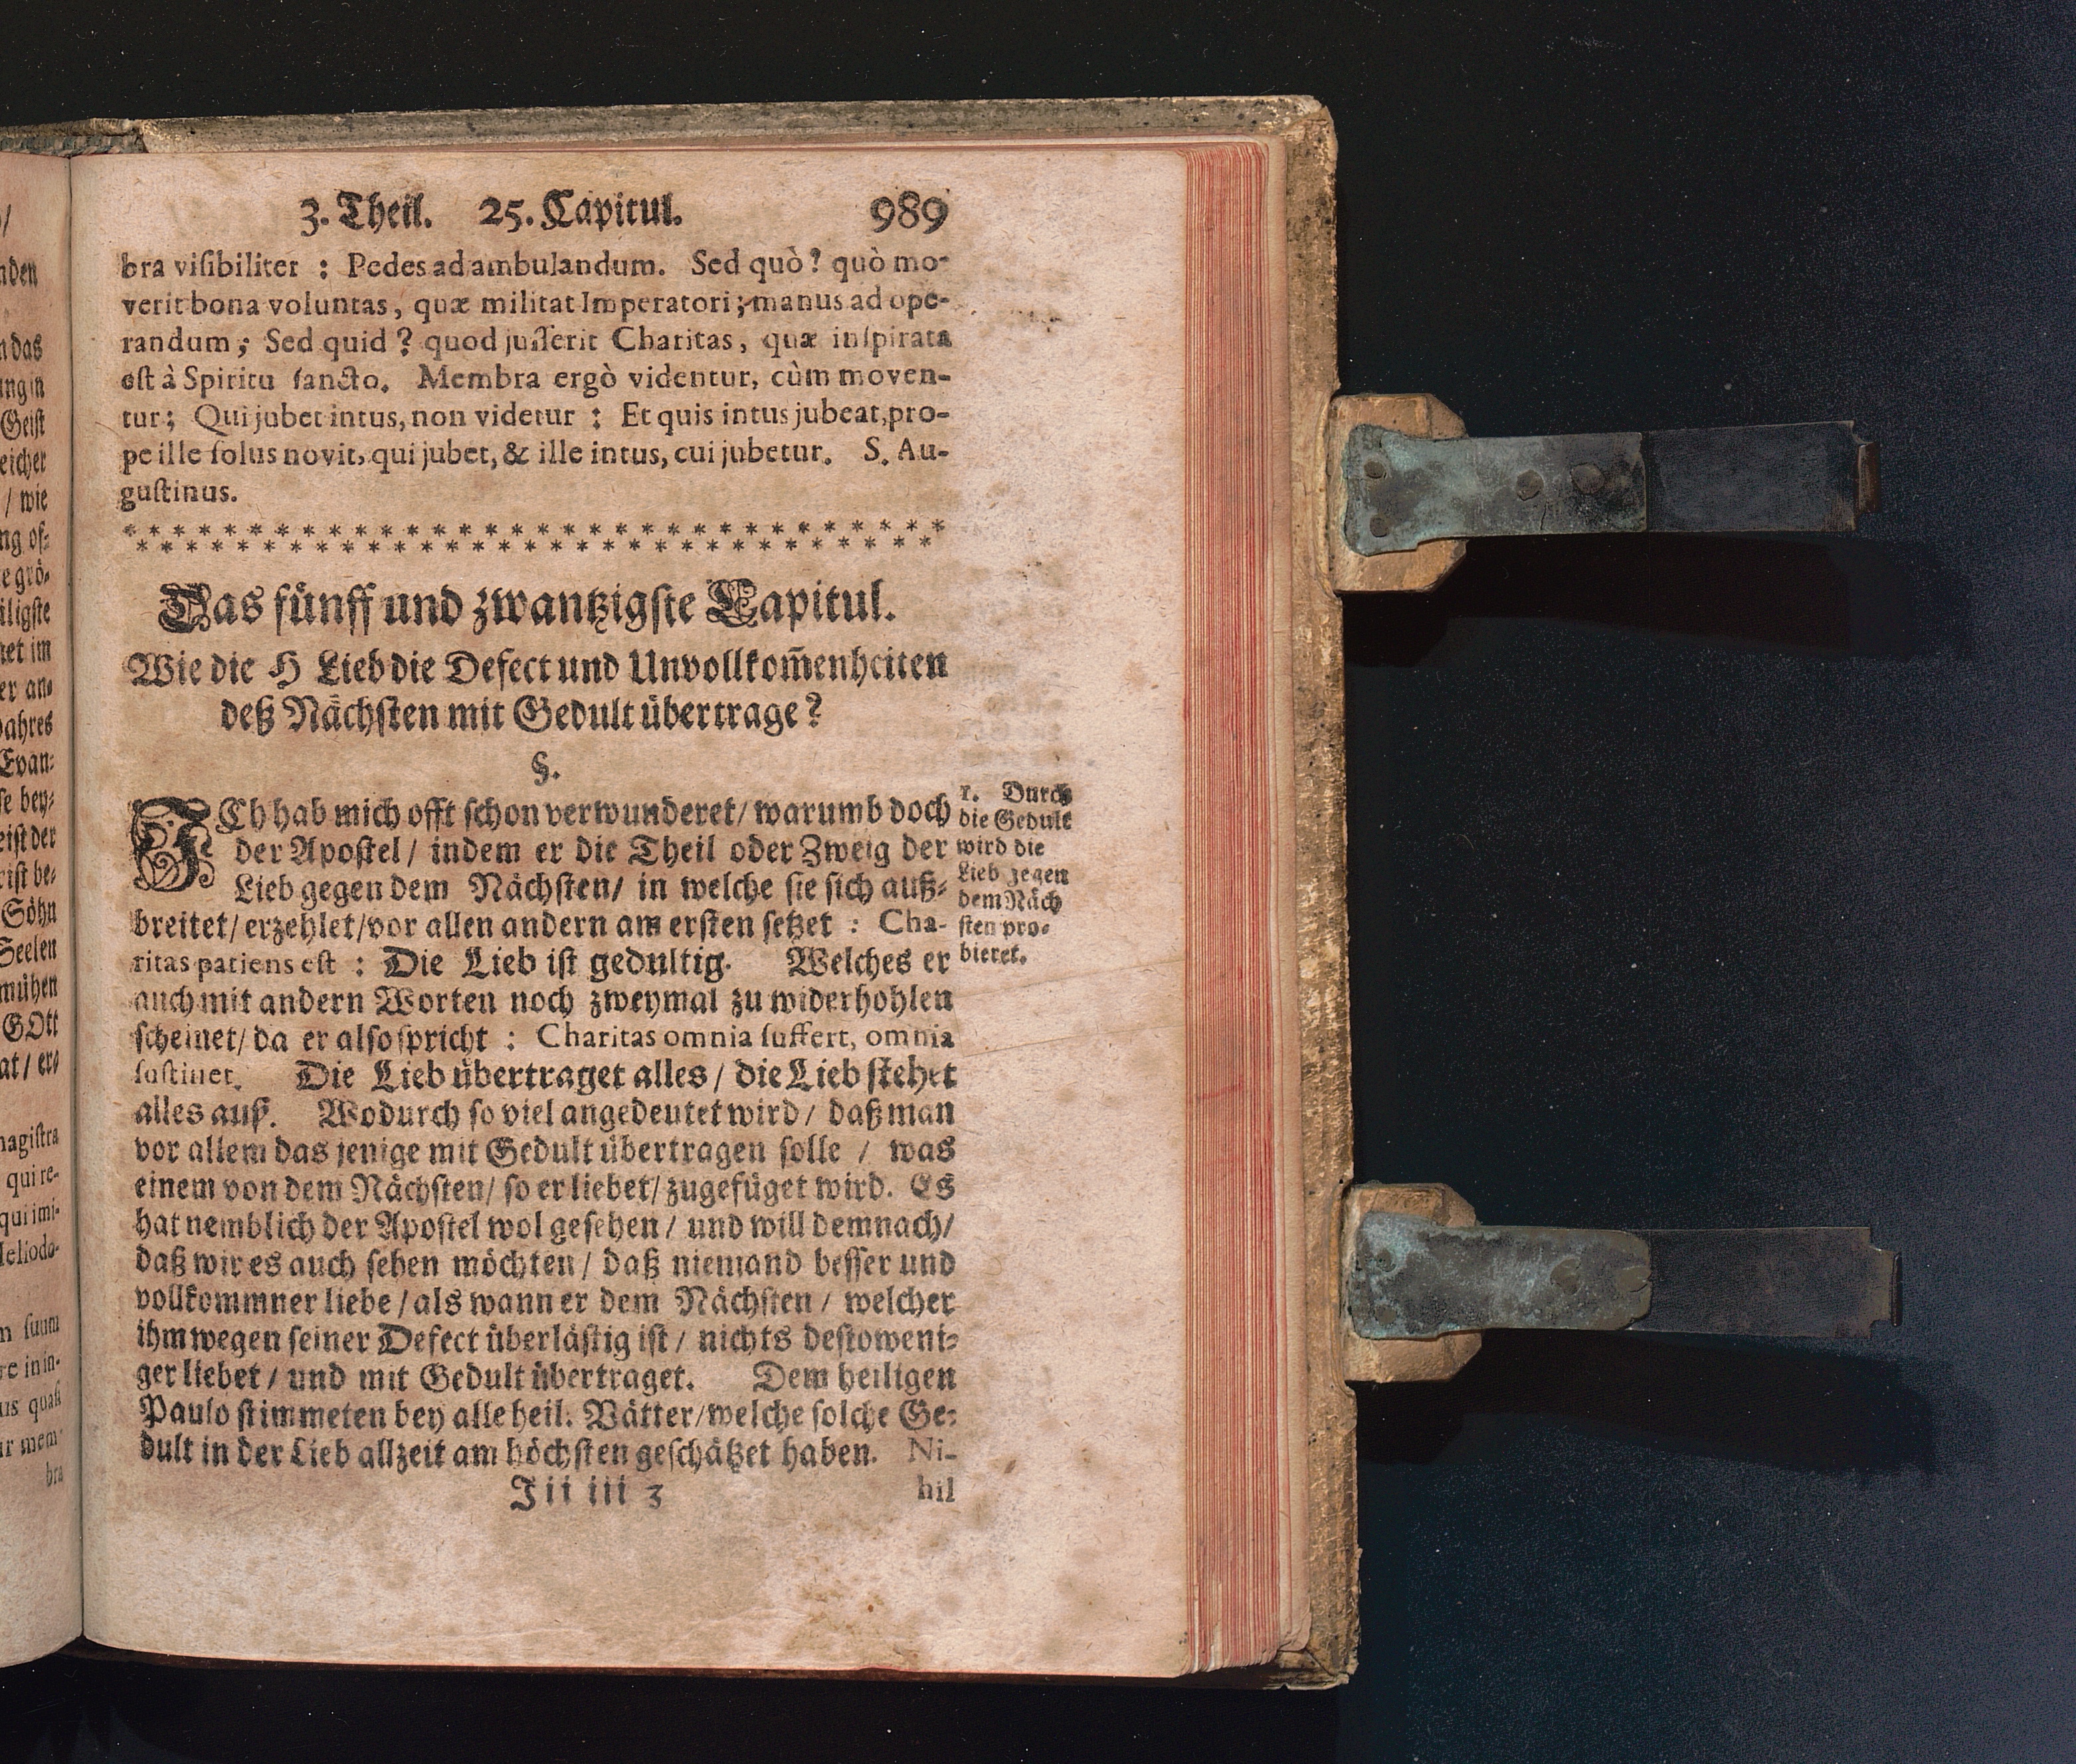 nden
das
Geist
eicher
/ wie
ng of-
e grö-
iligste
net im
er an-
Evan-
se bey-
eist der
rist be-
Söhn
Seelen
mühen
GOtt
at / er
magistra
qui re-
qui imi-
Heliodo-
m suum
re in in-
us quasi
ir mem-
bra
3. Theil. 25. Capitul. 989
bra visibiliter : Pedes ad ambulandum. Sed quò? quò mo-
verit bona voluntas, quæ militat Imperatori; manus ad ope-
randum; Sed quid? quod jusserit Charitas, quæ inspirata
est à Spiritu sancto. Membra ergò videntur, cùm moven-
tur; Qui jubet intus, non videtur : Et quis intus jubeat, pro-
pe ille solus novit, qui jubet, & ille intus, cui jubetur. S. Au-
gustinus.
Das fünff und zwantzigste Capitul.
Wie die H Lieb die Defect und Unvollkom̃enheiten
deß Nächsten mit Gedult übertrage?
§.
ICh hab mich offt schon verwunderet/ warumb doch
der Apostel/ indem er die Theil oder Zweig der
Lieb gegen dem Nächsten/ in welche sie sich auß-
breitet/ erzehlet/ vor allen andern am ersten setzet : Cha-
ritas patiens est : Die Lieb ist gedultig. Welches er
auch mit andern Worten noch zweymal zu widerhohlen
scheinet/ da er also spricht : Charitas omnia suffert, omnia
sustinet. Die Lieb übertraget alles / die Lieb stehet
alles auß. Wodurch so viel angedeutet wird / daß man
vor allem das jenige mit Gedult übertragen solle / was
einem von dem Nächsten/ so er liebet/ zugefüget wird. Es
hat nemblich der Apostel wol gesehen / und will demnach/
daß wir es auch sehen möchten / daß niemand besser und
vollkommner liebe / als wann er dem Nächsten / welcher
ihm wegen seiner Defect überlästig ist / nichts destoweni-
ger liebet / und mit Gedult übertraget. Dem heiligen
Paulo stimmeten bey alle heil. Vätter/ welche solche Ge-
dult in der Lieb allzeit am höchsten geschätzet haben. Ni-
Iii iii 3 hil
1. Durch
die Gedult
wird die
Lieb gegen
dem Näch
sten pro-
bieret.